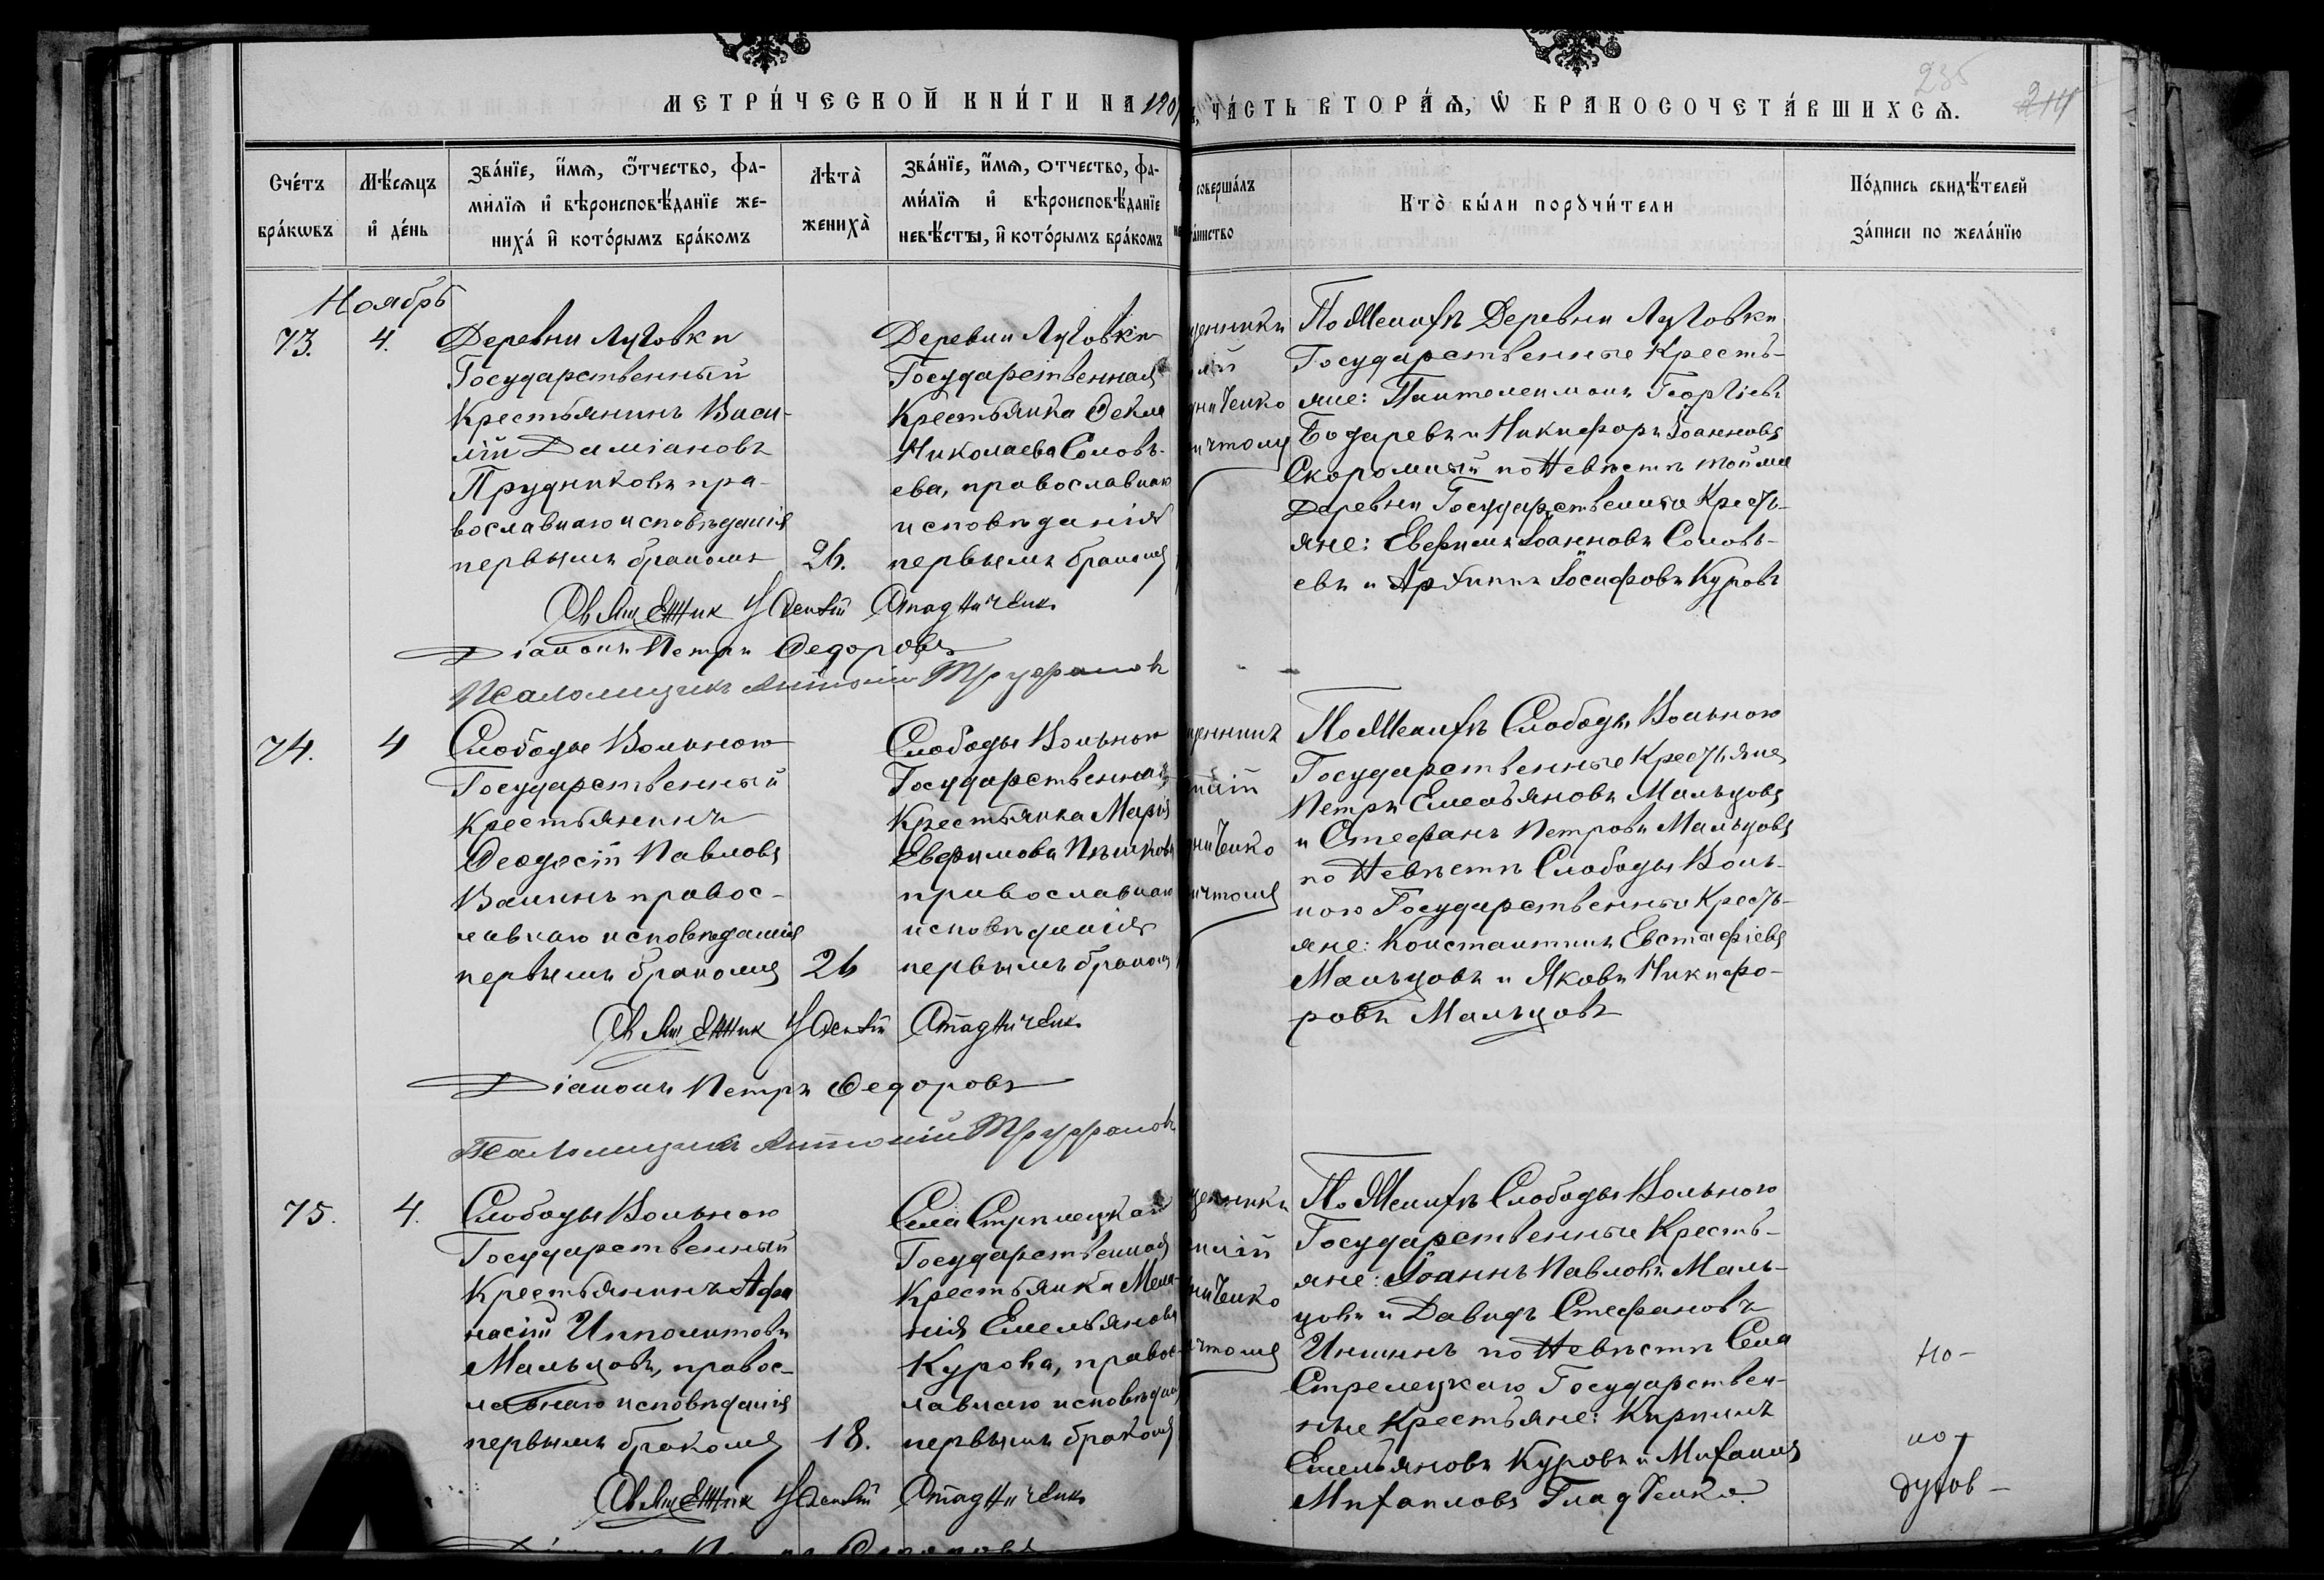 МЕТРИ́ЧЕСКОЙ КНИ́ГИ НА 190
ЧА́СТЬ ВТОРА́Ѧ, Ѡ҆ БРАКОСОЧЕТА́ВШИХСѦ.
235
214
Сче́тъ бра́кѡвъ
Мѣ́сѧцъ и҆ де́нь
Зва́нїе, и҆́мѧ, ѻ҆́тчество, фа-
ми́лїѧ и҆ вѣроисповѣ́данїе же-
ниха́ и҆ кото́рымъ бра́комъ
Лѣта̀ жениха̀
Зва́нїе, и҆́мѧ, отчество, фа-
ми́лїѧ и҆ вѣроисповѣ́данїе
невѣ́сты, и҆ кото́рымъ бра́комъ
соверша́лъ
та́инство
Кто̀ бы́ли порꙋчи́тели
По́дпись свидѣ́телей
за́писи по жела́нїю
Ноябрь
73.
4.
Деревни Луговки
Государственный
Крестьянинъ Васи-
лій Даміановъ
Прудниковъ пра-
вославнаго исповѣданія
первымъ бракомъ
26.
Деревни Луговки
Государственная
Крестьянка Ѳекла
Николаева Соловь-
ева, православнаго
исповѣданія
первымъ бракомъ
щенникъ
ниченко
ичтомъ
По Женихѣ Деревни Луговки
Государственные Кресть-
яне: Пантелеимонъ Георгіевъ
Бодаревъ и Никифоръ Іоанновъ
Скоромный по Невѣстѣ той же
Деревни Государственные Кресть-
яне: Евфимъ Іоанновъ Соловь-
евъ и Архипъ Іосифовъ Куровъ
Священник Стадниченко
Діаконъ Петръ Ѳедоровъ
Псаломщикъ Антоній Труфановъ
74.
4
Слободы Вольного
Государственный
Крестьянинъ
Ѳеодосій Павловъ
Ванинъ правос-
лавнаго исповѣданія
первымъ бракомъ
26
Слободы Вольного
Государственная
Крестьянка Марія
Евфимова Пѣшкова
православнаго
исповѣданія
первымъ бракомъ
щенникъ
ниченко
ичтомъ
По Женихѣ Слободы Вольного
Государственные Крестьяне
Петръ Емельяновъ Мальцовъ
и Стефанъ Петровъ Мальцовъ
по Невѣстѣ Слободы Воль-
ного Государственные Кресть-
яне: Константинъ Евстафіевъ
Мальцовъ и Яковъ Никифо-
ровъ Мальцовъ
Священник Стадниченко
Діаконъ Петръ Ѳедоровъ
Псаломщикъ Антоній Труффановъ
75.
4.
Слободы Вольного
Государственный
Крестьянинъ Афа
насій Ипполитовъ
Мальцовъ, правос-
лавнаго исповѣданія
первымъ бракомъ
18.
Села Стрѣлецкаго
Государственная
Крестьянка Мела-
нія Емельянова
Курова, правос-
лавнаго исповѣдан
первымъ бракомъ
щенникъ
ниченко
ичтомъ
По Женихѣ Слободы Вольного
Государственные Кресть-
яне: Іоаннъ Павловъ Маль-
цовъ и Давидъ Стефановъ
Иншинъ по Невѣстѣ Села
Стрелецкаго Государствен-
ные Крестьяне: Кириллъ
Емельяновъ Куровъ и Михаилъ
Михаиловъ Гладченко.
но-
духов-
Священник Стадниченко